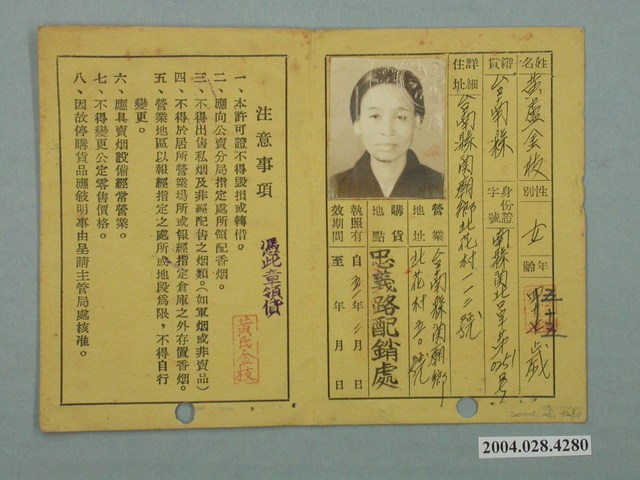 姓名 黃盧金枝 性別 女 年齡 五十五歲
籍貫 台南縣 身份證字號 南縣關北字第0251號
詳細住址 台南縣關廟鄉北花村一一二號
營業地址 台南縣關廟鄉北花村
購貨地點 忠義路配銷處
執照有效期間 自 年 月 日 至 年 月 日
注意事項
一、本許可證不得毀損或轉借。
二、應向公賣分局指定處所領配香烟。
三、不得出售私烟及非經配售之烟類。(如軍烟或非賣品)
四、不得於居所營業場所或報經指定倉庫之外存置香烟。
五、營業地區以報經指定之處所或地段為限，不得自行
變更。
六、應具賣烟設備經常營業。
七、不得變更公定零售價格。
八、因故停購貨品應敍明事由呈請主管局處核准。
憑此章領貨
黃氏金枝
2004.028.4280